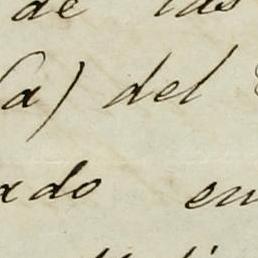 de las
(a) del
ado en